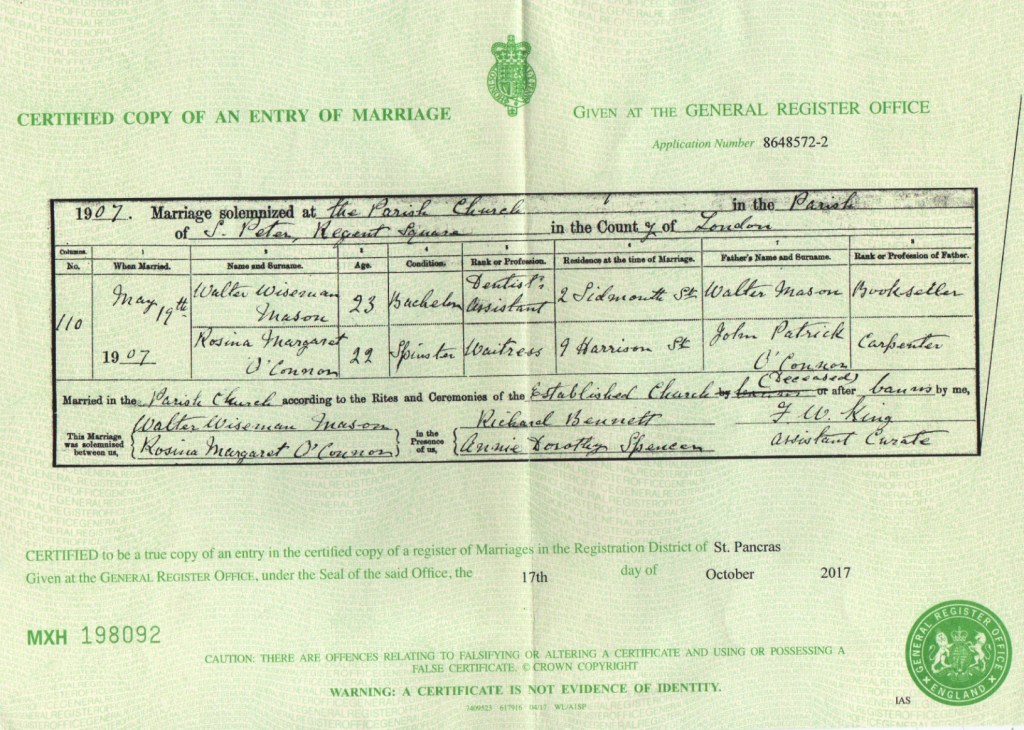 CERTIFIED COPY OF AN ENTRY OF MARRIAGE
GIVEN AT THE GENERAL REGISTER OFFICE
Application Number 8648572-2
1907. Marriage solemnized at the Parish Church in the Parish
of S. Peter, Regent Square in the County of London
Columns. 1 2 3 4 5 6 7 8
No. When Married. Name and Surname. Age. Condition. Rank or Profession. Residence at the time of Marriage. Father's Name and Surname. Rank or Profession of Father.
110 May 19th 1907 Walter Wiseman Mason 23 Bachelor Dentist's Assistant 2 Sidmouth St Walter Mason Bookseller
Rosina Margaret O'Connor 22 Spinster Waitress 9 Harrison St John Patrick O'Connor (Deceased) Carpenter
Married in the Parish Church according to the Rites and Ceremonies of the Established Church by or after banns by me,
This Marriage was solemnized between us, Walter Wiseman Mason
Rosina Margaret O'Connor
in the Presence of us, Richard Bennett
Annie Dorothy Spencer
F. W. King
Assistant Curate
CERTIFIED to be a true copy of an entry in the certified copy of a register of Marriages in the Registration District of St. Pancras
Given at the GENERAL REGISTER OFFICE, under the Seal of the said Office, the 17th day of October 2017
MXH 198092
CAUTION: THERE ARE OFFENCES RELATING TO FALSIFYING OR ALTERING A CERTIFICATE AND USING OR POSSESSING A
FALSE CERTIFICATE. © CROWN COPYRIGHT
WARNING: A CERTIFICATE IS NOT EVIDENCE OF IDENTITY.
GENERAL REGISTER OFFICE
ENGLAND
IAS